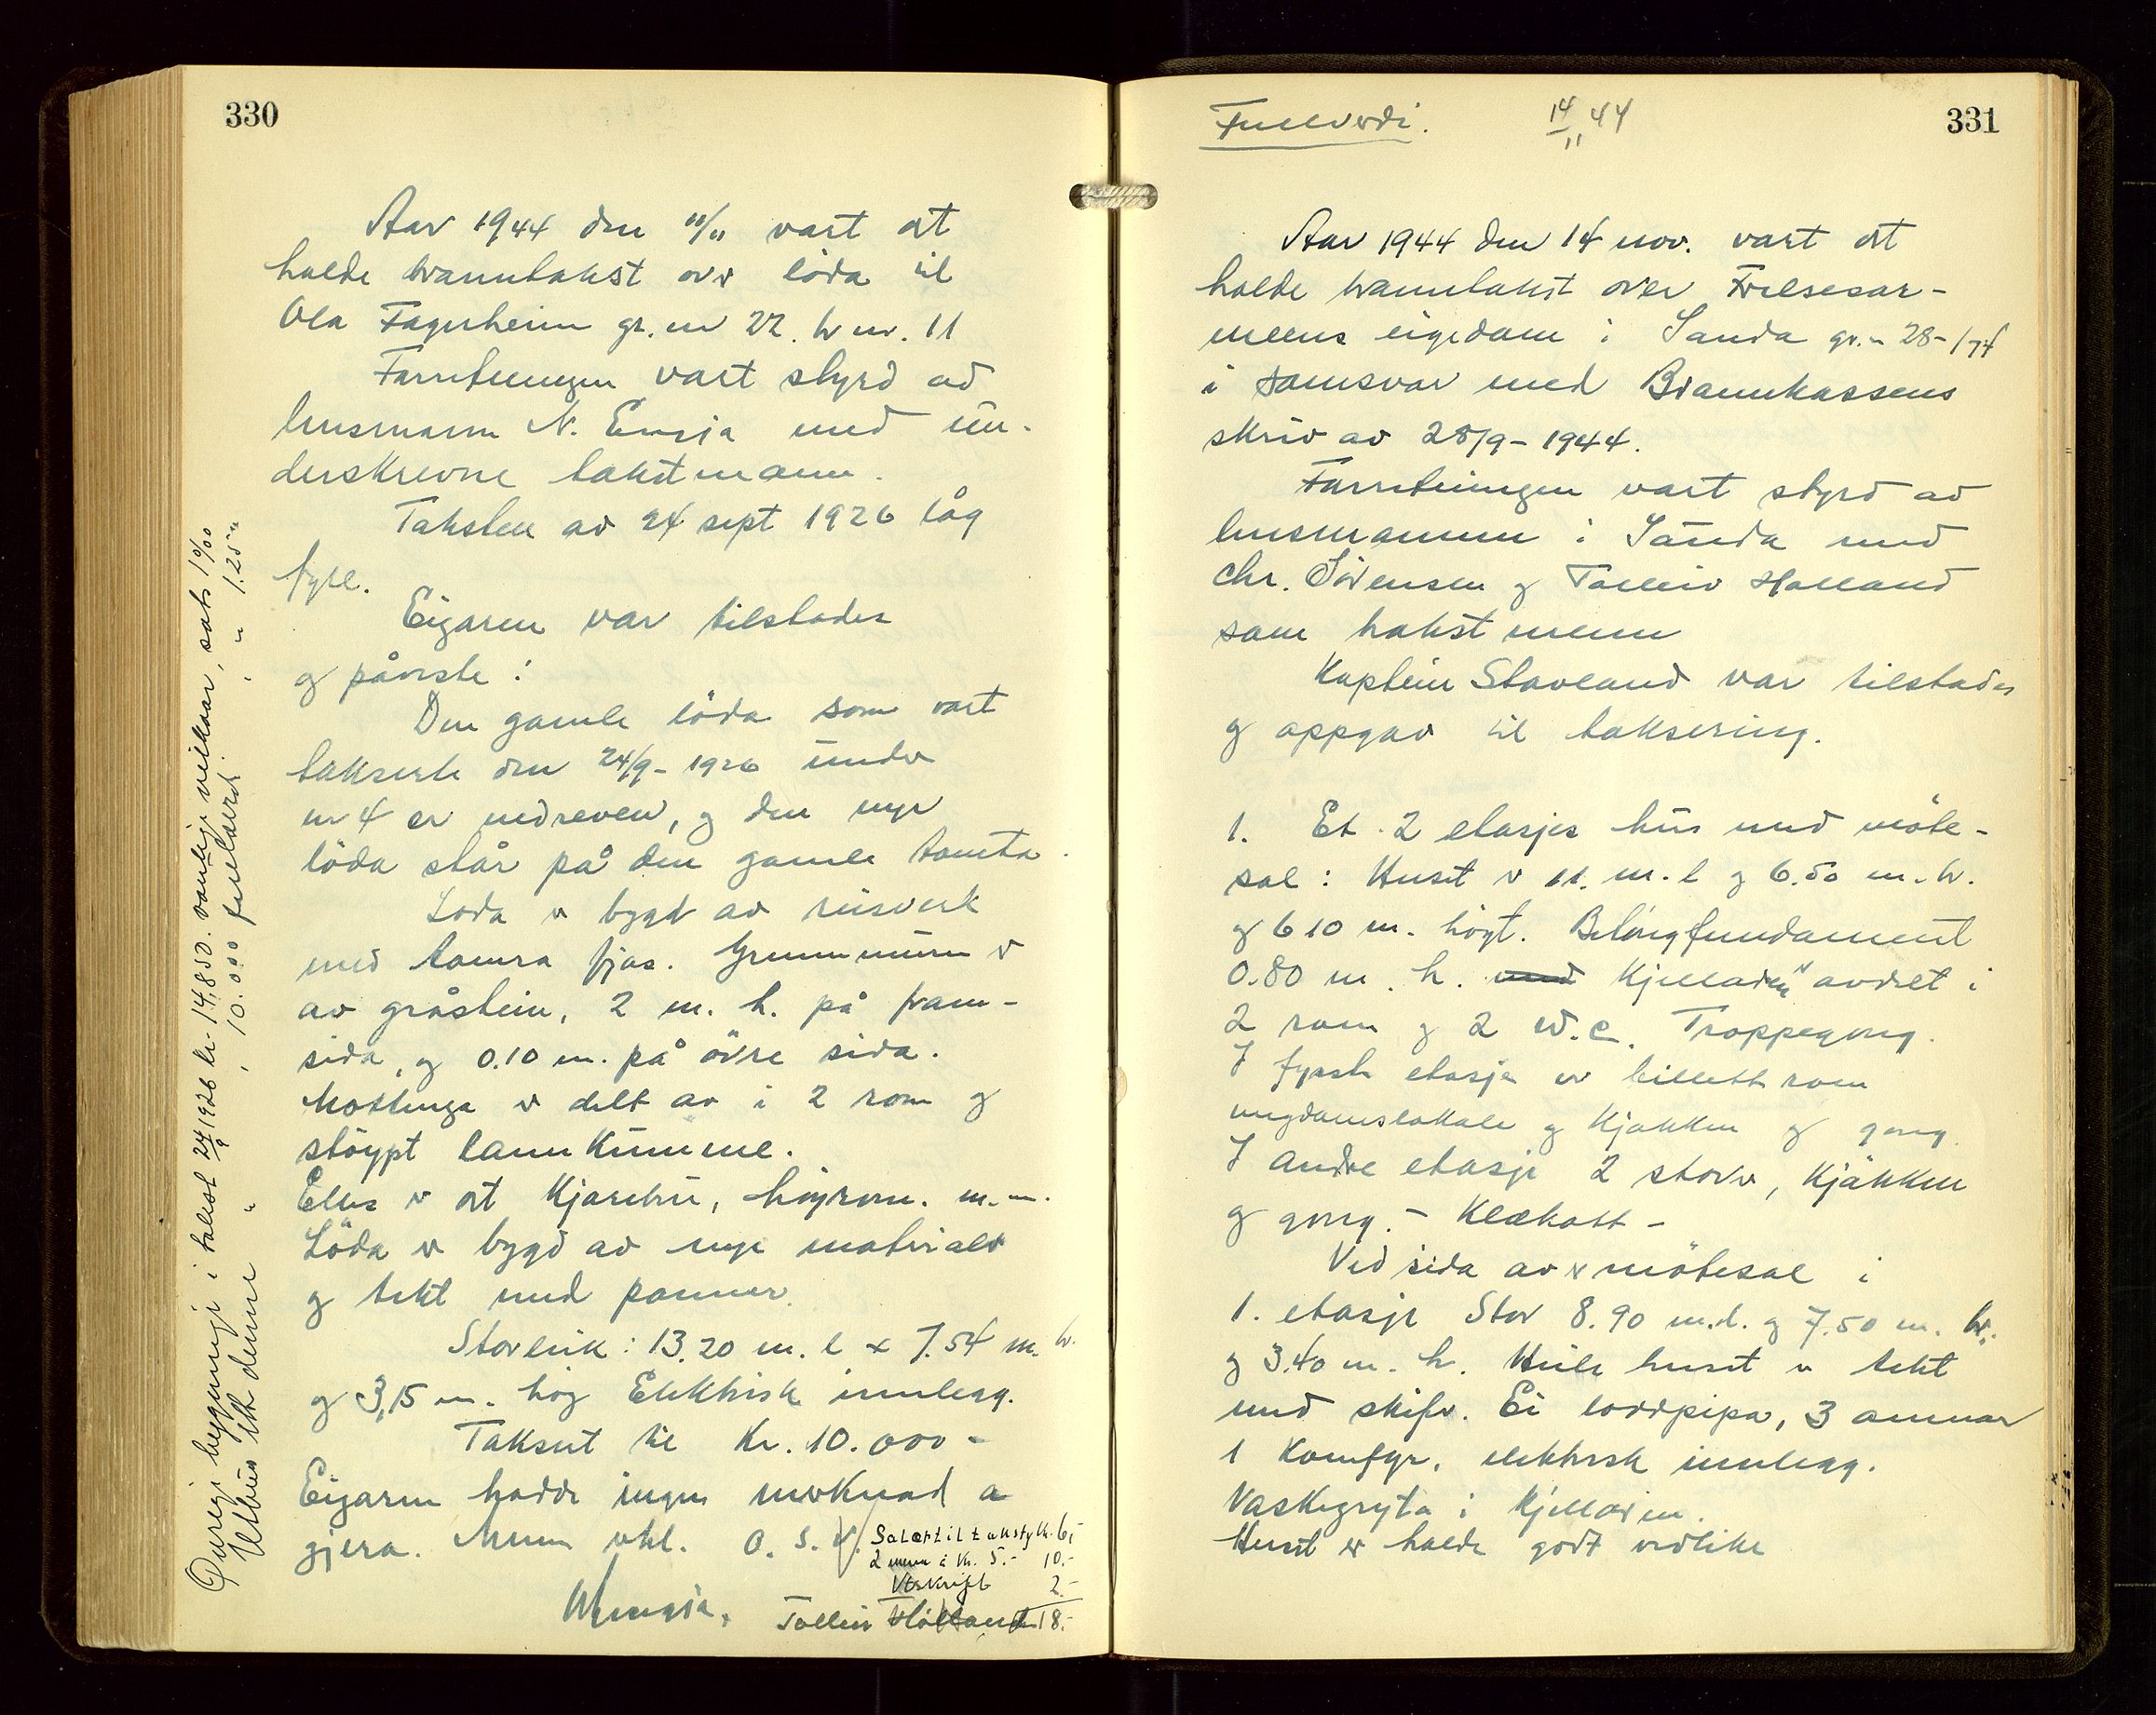 330
Aar 1944 den 11/11 vart det
halde branntakst over löda til
Ola Fagerheim gr. nr 22. br nr. 11
Forretningen vart styrd av
lensmann N. Ersja med un-
derskrevne takstmann.
Taksten av 24 sept 1926 låg
fyre.
Eigaren var tilstades
og påviste:
Den gamle löda som vart
takserte den 24/9-1926 under
nr 4 er nedreven, og den nye
löda står på den gamle tomta.
Löda er bygd av reisverk
med tømra fjøs. Grunnmuren er
av gråstein, 2 m. h. på fram-
sida, og 0.10 m. på övre sida.
Mottinga er delt av i 2 rom og
støypt lannkumme.
Elles er det kjørebru, høyrom. m.m.
Löda er bygd av nye materialer
og tekt med panner.
Storleik: 13.20 m. l x 7.54 m. br.
og 3,15 m. høg Elektrisk innlegg.
Taksert til Kr. 10.000-
Eigaren hadde ingen merknad a
gjera. O. S. V.
Salær til takstyk. 6,-
2 menn à kr. 5.- 10.-
Utskrift 2.-
18.-
Tolleiv Holland
Øvrige bygningi i takst 24/9 1926 kr 14.850. vanlige vilkaar, sats 1 0/00
Utbüs etter denne " , 10.000 fullverd. , " " 1.25 "
Fullverdi. 14/11 44
331
Aar 1944 den 14 nov. vart det
halde branntakst over Frelsesar-
meens eigedom i Sanda gr. n 28-/74
i samsvar med Brannkassens
skriv av 28/9-1944.
Forretningen vart styrd av
lensmannen i Sanda med
Chr. Sörensen og Tolleiv Holland
som takstmenn
Kaptein Stavland var tilstades
og oppgav til taksering.
1. Et 2 etasjes hus med möte-
sal: Huset er 11. m. l og 6.50 m. br.
og 610 m. högt. Betongfundament
0.80 m. h. med Kjellaren er avdelt i
2 rom og 2 W.C. Trappegong.
I fyrste etasje er billett rom
ungdomslokale og Kjøkken og gong.
I andre etasje 2 stover, Kjøkken
og gong.- Klekott-
Ved sida av er mötesal i
1. etasje Stor 8.90 m.l. og 7.50 m. br.
og 3.40 m. h. Heile huset er tekt
med skifer. Ei loddpipa, 3 omnar
1 Komfyr, elektrisk innlegg.
Vaskegryta i kjellaren.
Huset er halde godt vedlike